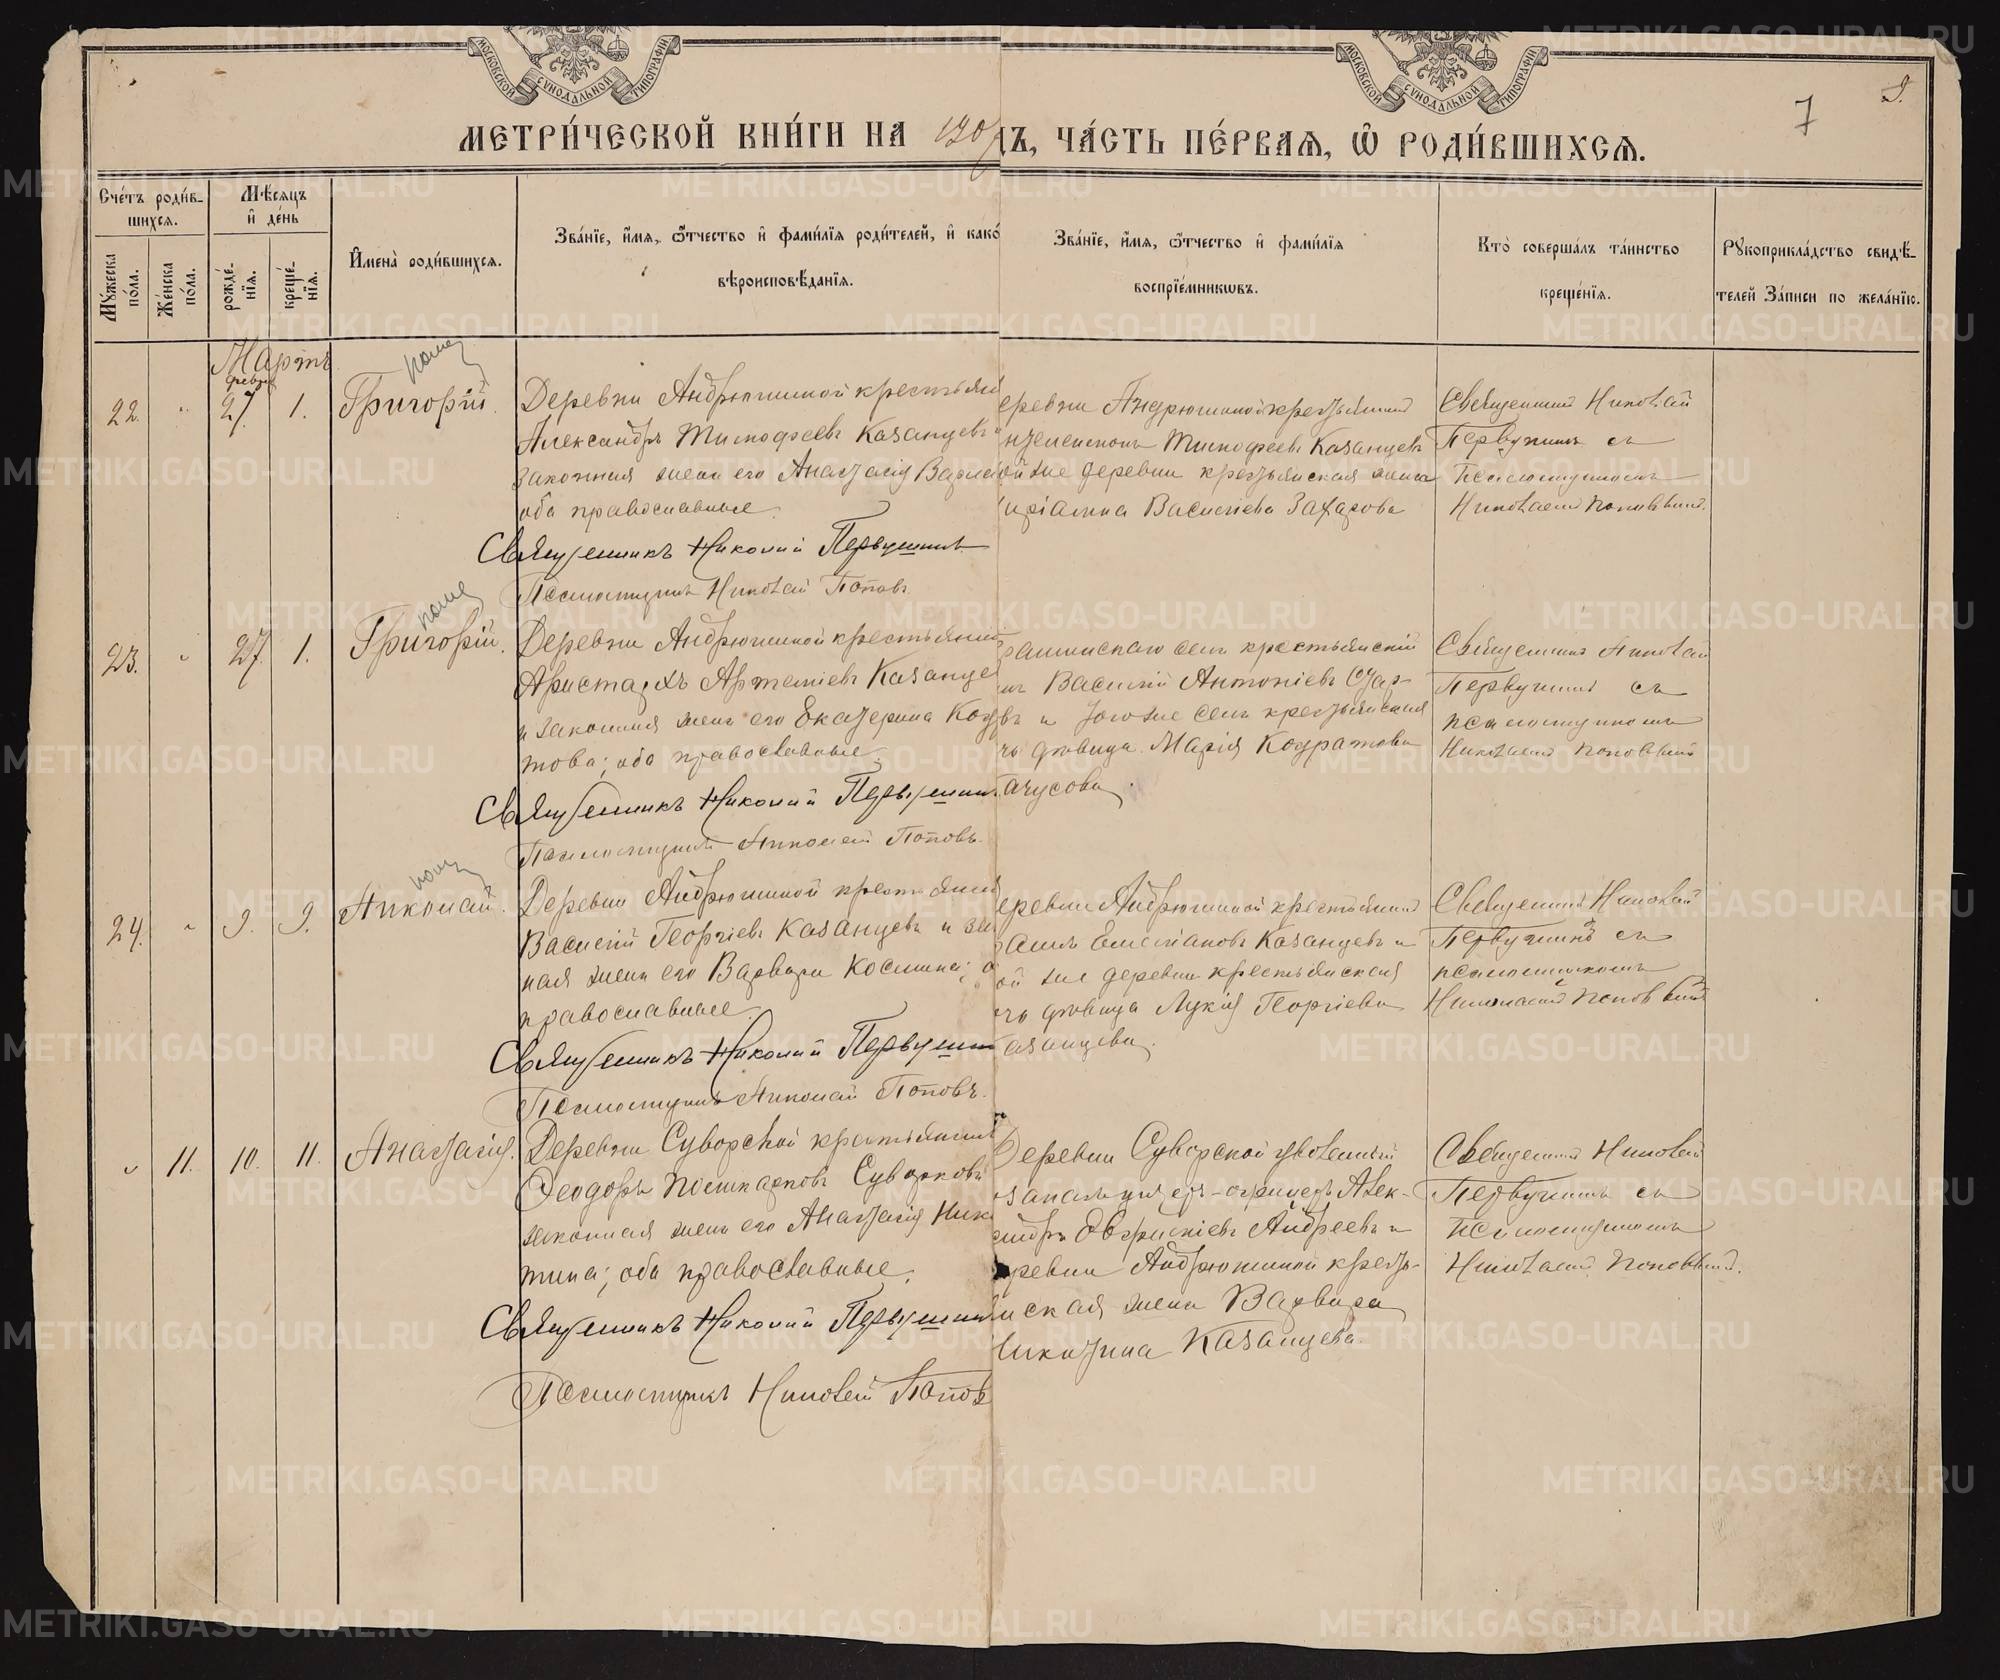 МОСКОВСКОЙ СУНОДАЛЬНОЙ ТИПОГРАФІИ
МОСКОВСКОЙ СУНОДАЛЬНОЙ ТИПОГРАФІИ
7
9.
МЕТРИ́ЧЕСКОЙ КНИ́ГИ НА 190
ДЪ, ЧА́СТЬ ПЕ́РВАѦ, Ѡ РОДИ́ВШИХСѦ.
Сче́тъ роди́в-
шихсѧ.
Мꙋ́жеска по́ла.
Же́нска по́ла.
Мѣ́сѧцъ
и҆ де́нь
рожде́-нїѧ.
креще́-нїѧ.
И҆мена̀ роди́вшихсѧ.
Зва́нїе, и҆́мѧ, ѻ҆́тчество и҆ фами́лїѧ роди́телей, и҆ како́
вѣроисповѣ́данїѧ.
Зва́нїе, и҆́мѧ, ѻ҆́тчество и҆ фами́лїѧ
воспрїе́мникѡвъ.
Кто̀ соверша́лъ та́инство
креще́нїѧ.
Рꙋкоприкла́дство свидѣ́-
телей За́писи по жела́нїю.
Мартъ
22. " 27. 1. Григорій.
Деревни Андрюшиной крестьян
Александръ Тимофеевъ Казанцевъ
законная жена его Анастасія Варла
оба православные.
Священникъ Николай Первушинъ
Псаломщикъ Николай Поповъ.
еревни Андрюшиной крестьянинъ
Тимофеевъ Казанцевъ
ой же деревни крестьянская жена
Васильева Захарова
Священникъ Николай
Первушинъ съ
псаломщикомъ
Николаемъ Поповымъ.
23. " 27. 1. Григорій.
Деревни Андрюшиной крестьянин
Аристархъ Артеміевъ Казанце
и законная жена его Екатерина Код
това; оба православные.
Священникъ Николай Первушинъ
Псаломщикъ Николай Поповъ.
села крестьянскій
Василій Антоніевъ
въ и того же села крестьянская
чь дѣвица Марія Кодратова
Священникъ Николай
Первушинъ съ
псаломщикомъ
Николаемъ Поповымъ
24. " 9. 9. Николай.
Деревни Андрюшиной крестьянин
Василій Георгіевъ Казанцевъ и за
ная жена его Варвара Космина; о
православные.
Священникъ Николай Первушин
Псаломщикъ Николай Поповъ.
еревни Андрюшиной крестьянинъ
Емеліановъ Казанцевъ и
ой же деревни крестьянская
чь дѣвица Лукія Георгіева
азанцева.
Священникъ Николай
Первушинъ съ
псаломщикомъ
Николаемъ Поповымъ
" 11. 10. 11. Анастасія.
Деревни Суворской крестьянинъ
Ѳеодоръ Поликарповъ Суворковъ
законная жена его Анастасія Ник
тина; оба православные.
Священникъ Николай Первушин
Псаломщикъ Николай Поповъ
Деревни Суворской уволенный
запасъ унтеръ-офицеръ Алек-
сандръ Андреевъ и
еревни Андрюшиной кресть-
нская жена Варвара
Никитина Казанцева.
Священникъ Николай
Первушинъ съ
псаломщикомъ
Николаемъ Поповымъ.
METRIKI.GASO-URAL.RU